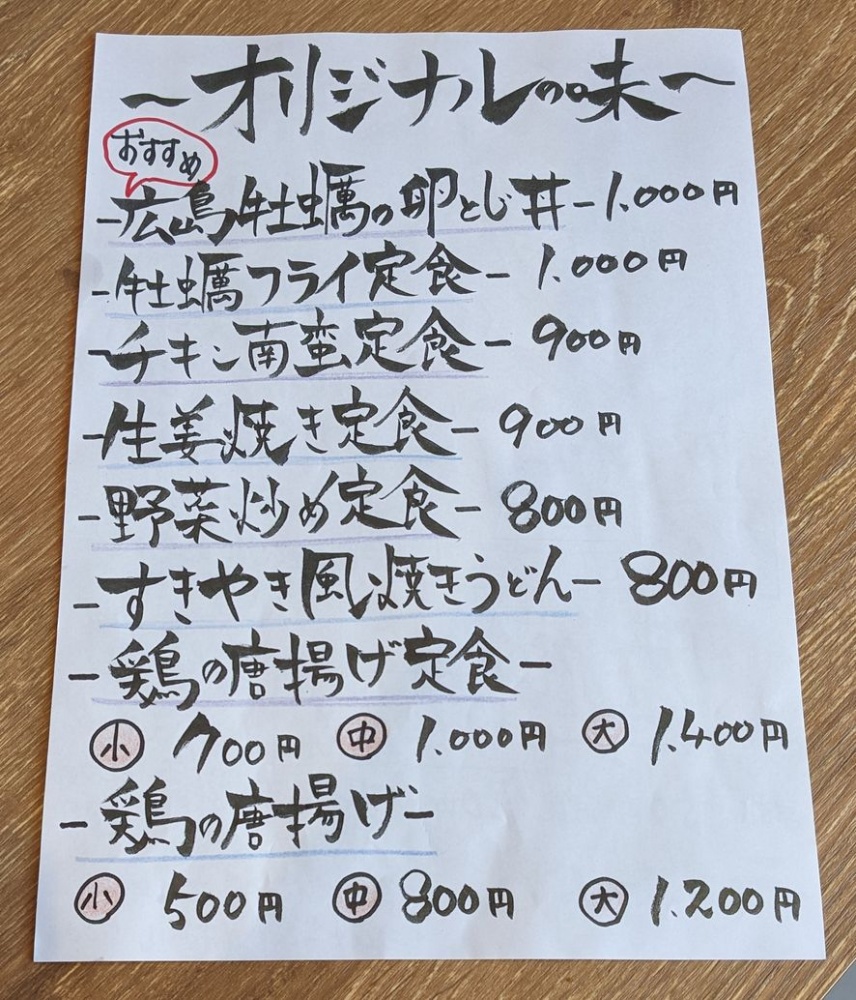 〜オリジナルの味〜
おすすめ
-広島牡蠣の卵とじ丼- 1.000円
-牡蠣フライ定食- 1.000円
-チキン南蛮定食- 900円
-生姜焼き定食- 900円
-野菜炒め定食- 800円
-すきやき風焼きうどん- 800円
-鶏の唐揚げ定食-
小 700円 中 1.000円 大 1.400円
-鶏の唐揚げ-
小 500円 中 800円 大 1.200円